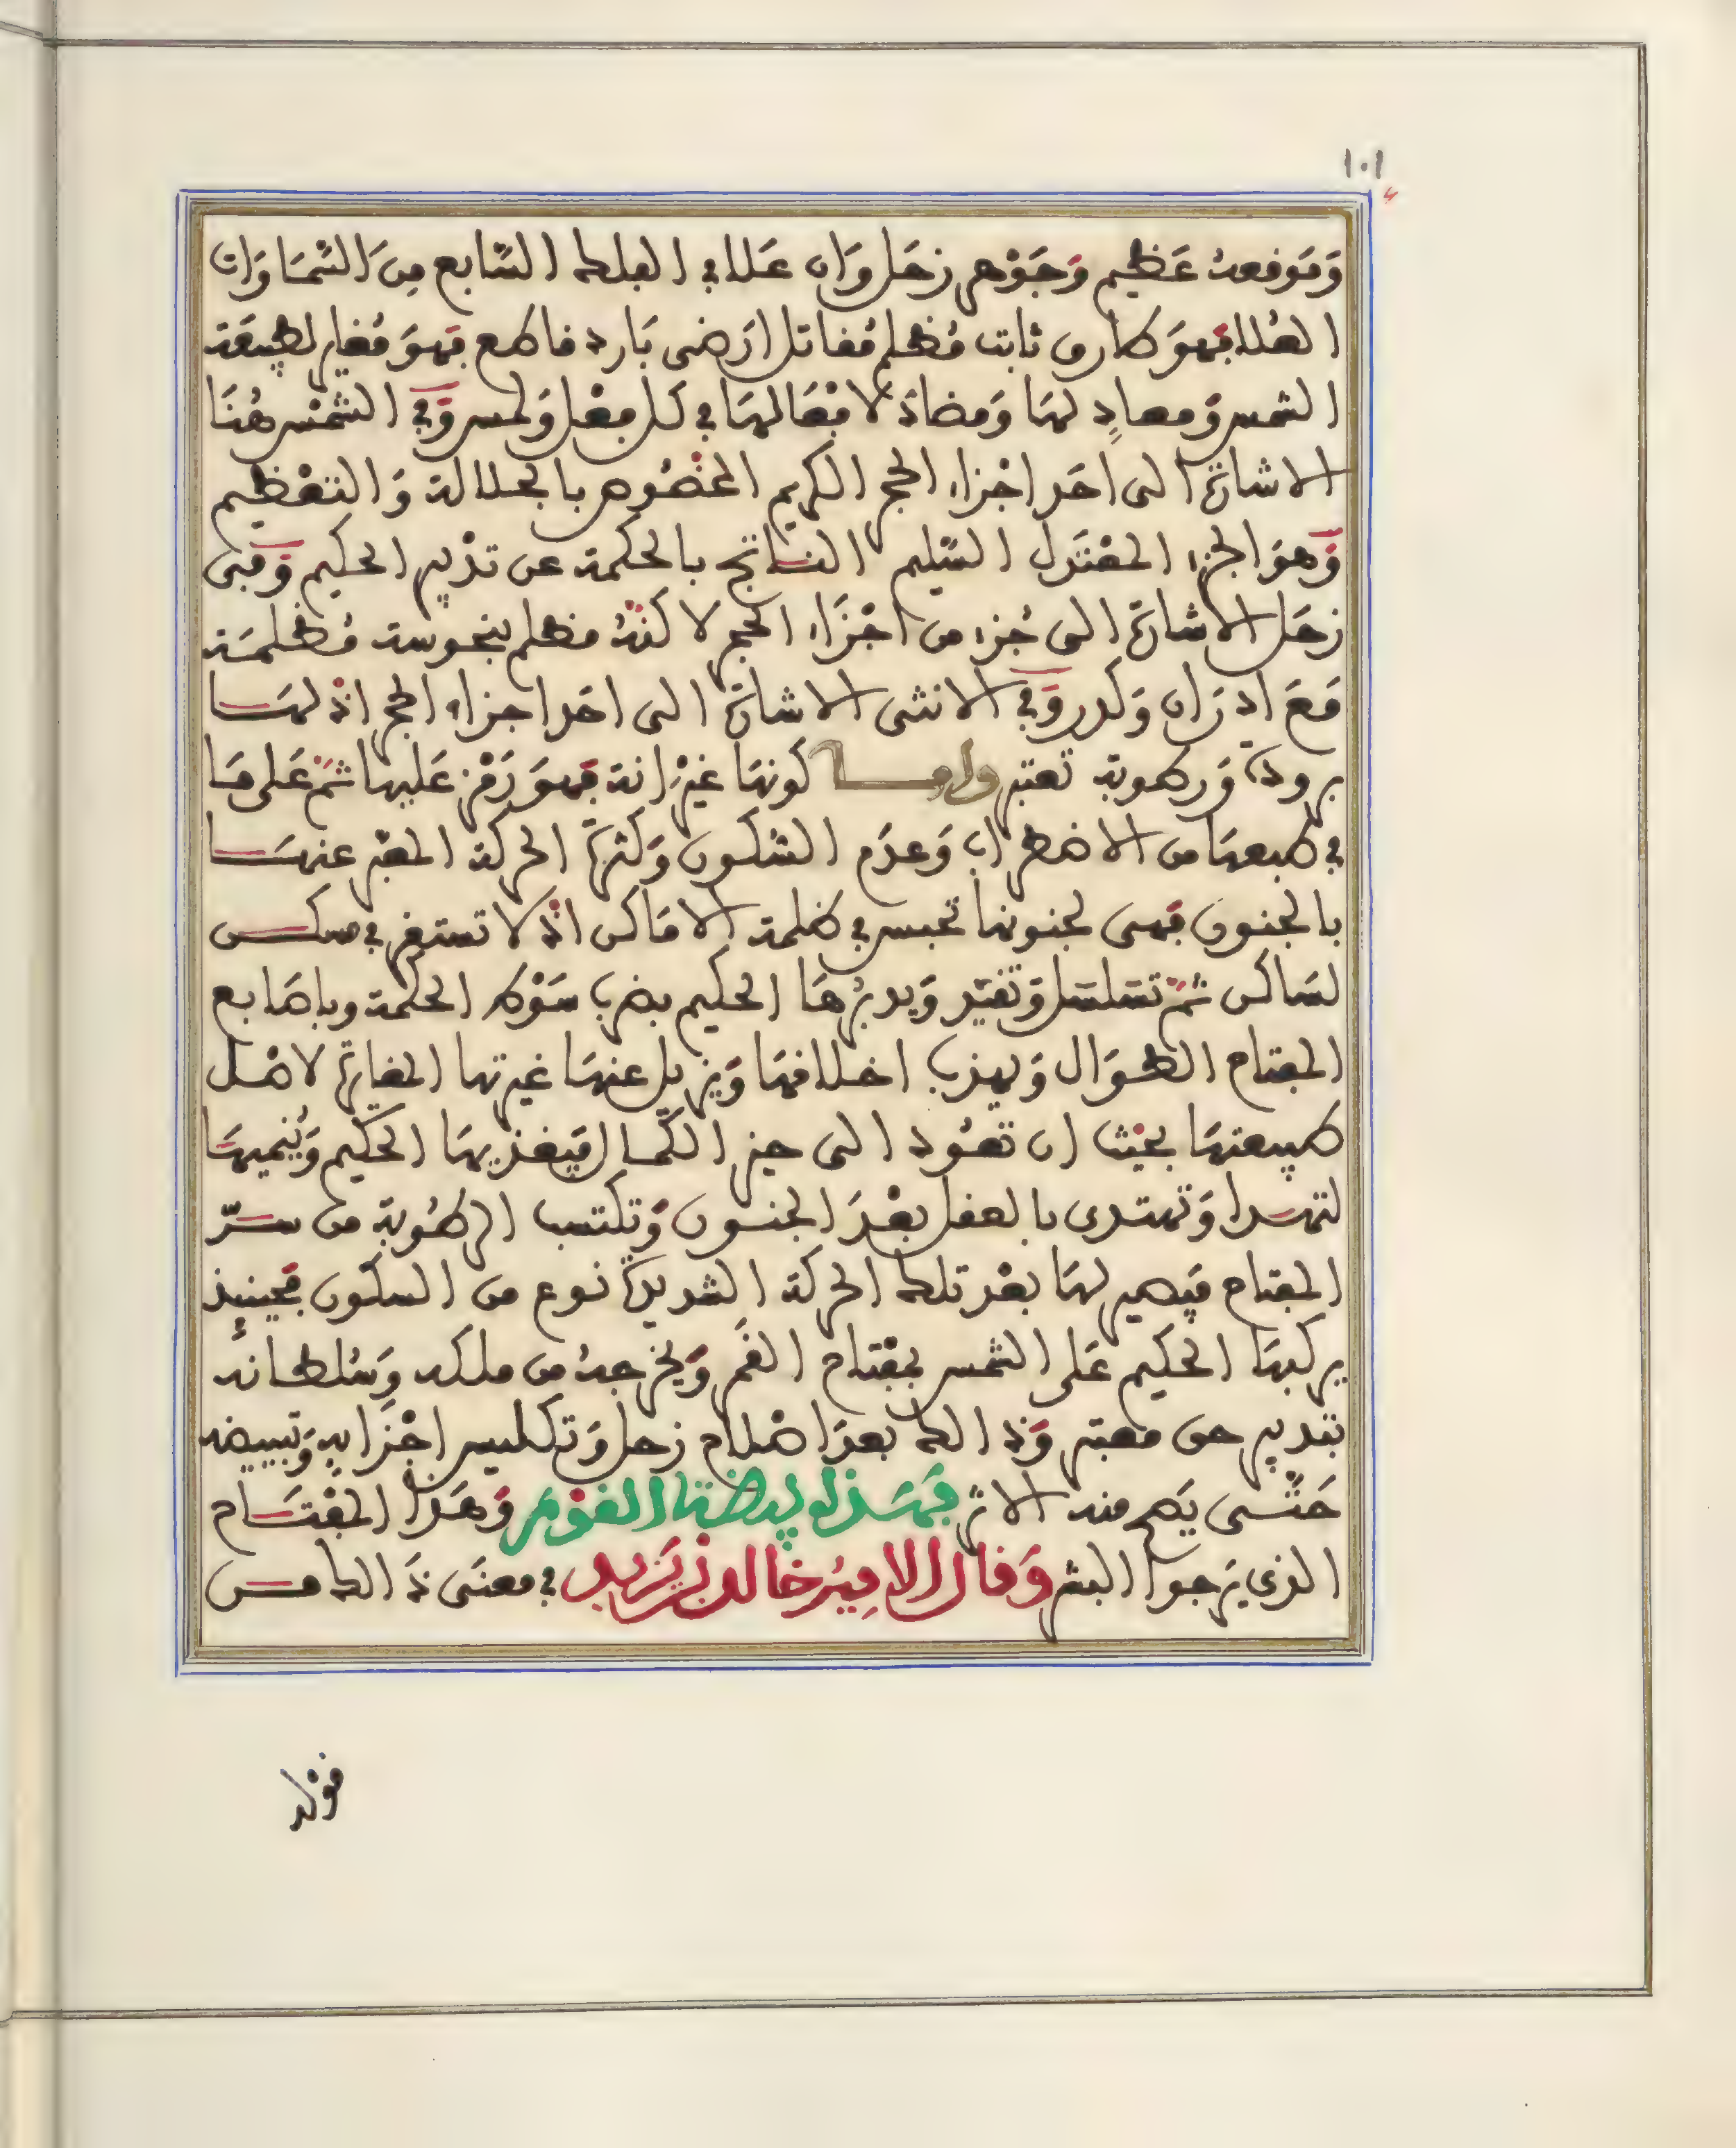 ١٠١
وَمَوقعهُ عَظيم وَجَوْهر زحَل وَان عَلا في الفلك السَّابع مِنَ السَّمَاوَات
العُلا فهوَ كدرى ثابت مُظلم مُقاتل ارَضى بَارد قاطع فهوَ مُغاير لطبيعَة
الشمس وَمعادٍ لهَا وَمضادّ لافعَالهَا في كل فعْل وَلمس وَفي الشمْس هُنَا
الاشارة الى احَد اجْزاء الحجر الكريم المخصُوص بالجلالة وَالتعْظيم
وَهوَ الجزء المعْتَدل السَّليم الناتج بالحكمة عن تدْبير الحكيم وَفى
زحَل الاشارة الى جُزء من اجْزَاء الحجر لاكنّهُ مظلم بنحوسة مُظلمَة
مَعَ ادرَان وَكدر وَفي الانثى الاشارة الى احَد اجزاء الحجر اذ لهَا
برودة وَرطوبة تعتبر وامـا كونهَا غيْرانة فهوَ رَمْز عَليها ثمّ عَلى مَا
في طبعهَا من الاضطراب وَعدَم السُّكون وَكثرة الحركة المعبّر عنهَا
بالجنون فهى لجنونها تحبس في ظلمة الامَاكن اذ لا تستقر في مسكن
لسَاكن ثمّ تسَلسَل وَتقيّد وَيدبّرهَا الحكيم بضرب سَوْط الحكمة وباصَابع
المفتاح الطوَال وَيهذب اخلاقهَا وَيزيل عنهَا غيرتها المغايرة لاصْل
طبيعتهَا بحيْث ان تعُود الى حيز الكمال فيغذيهَا الحكيم وَيُنميهَا
لتهدا وَتهتدى بالعقل بعْدَ الجنون وَتكتسب الرطُوبة من سرّ
المفتاح فيصير لهَا بعْد تلك الحركة الشديدة نوع من السكون فحينيذ
يركبهَا الحكيم عَلى الشمس بمفْتاح القمَر وَيخرجهُ من ملكه وَسُلطانه
بتدبير حق معتبر وَذالك بعدَ اصْلاح زحل وَتكليس اجْزَايه وَتبييضه
حَتّى يَطهر منه الاثر فهَـذا وَهَـذا المفْتَاح
الذى يَرجوا البشر وَقال الامِيرُ خالد بن يَزيد في معنَى ذَالك مـن
قوله